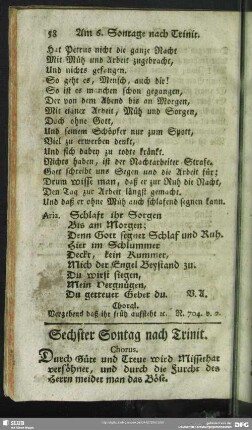 58 Am 6. Sontage nach Trinit.
Hat Petrus nicht die ganze Nacht
Mit Müh und Arbeit zugebracht,
Und nichts gefangen.
So geht es, Mensch, auch dir!
So ist es manchen schon gegangen,
Der von dem Abend bis an Morgen,
Mit eigner Arbeit, Müh und Sorgen,
Doch ohne Gott,
Und seinem Schöpfer nur zum Spott,
Viel zu erwerben denkt,
Und sich dabey zu todte kränkt.
Nichts haben, ist der Nachtarbeiter Strafe,
Gott schreibt uns Segen und die Arbeit für;
Drum wisse man, daß er zur Ruh die Nacht,
Den Tag zur Arbeit längst gemacht.
Und daß er ohne Müh auch schlafend segnen kann.
Aria. Schlaft ihr Sorgen
Bis am Morgen;
Denn Gott segnet Schlaf und Ruh.
Hier im Schlummer
Deckt, kein Kummer,
Mich der Engel Beystand zu.
Du wirst siegen,
Mein Vergnügen,
Du getreuer Geber du. V. A.
Choral.
Vergebens daß ihr früh aufsteht ꝛc. N. 704. v. 2.
Sechster Sontag nach Trinit.
Chorus.
Durch Güte und Treue wird Missethat
versöhnet, und durch die Furcht des
Herrn meidet man das Böse.